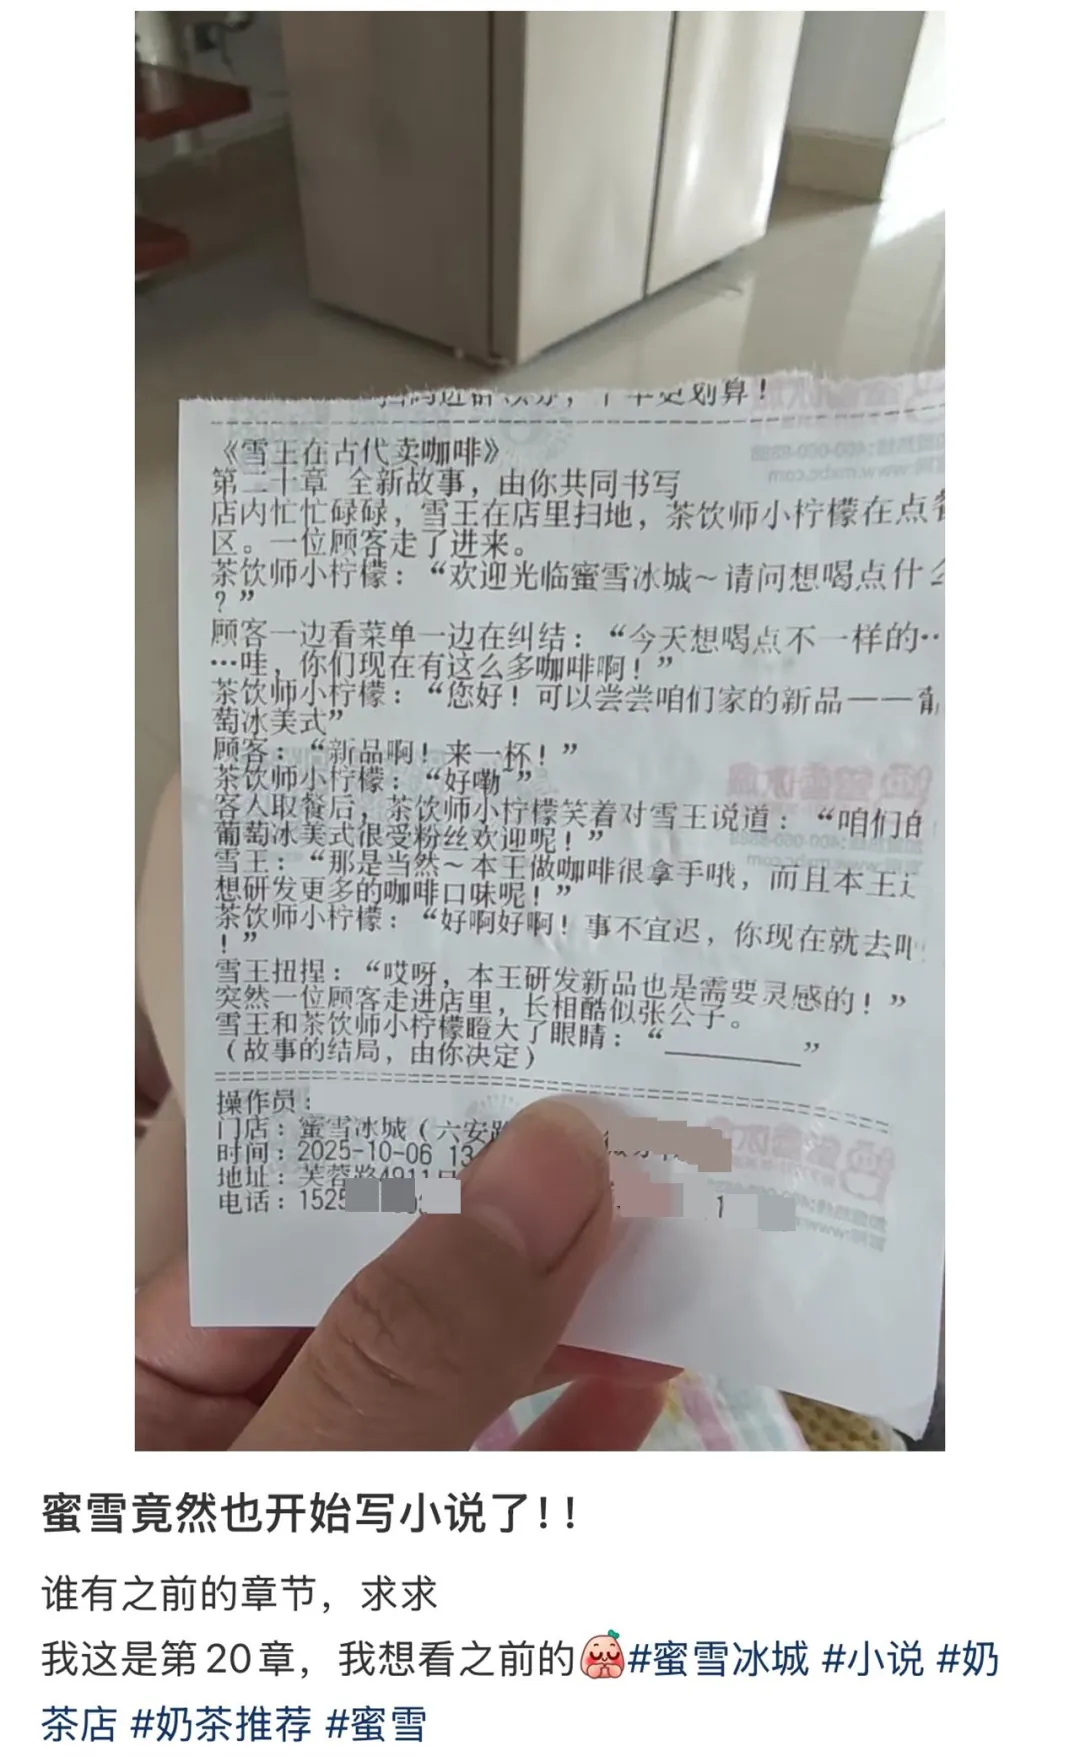 更划算！
《雪王在古代卖咖啡》
第二十章 全新故事，由你共同书写
店内忙忙碌碌，雪王在店里扫地，茶饮师小柠檬在点餐
区。一位顾客走了进来。
茶饮师小柠檬：“欢迎光临蜜雪冰城～请问想喝点什么
？”
顾客一边看菜单一边在纠结：“今天想喝点不一样的…
…哇，你们现在有这么多咖啡啊！”
茶饮师小柠檬：“您好！可以尝尝咱们家的新品——葡
萄冰美式”
顾客：“新品啊！来一杯！”
茶饮师小柠檬：“好嘞~”
客人取餐后，茶饮师小柠檬笑着对雪王说道：“咱们的
葡萄冰美式很受粉丝欢迎呢！”
雪王：“那是当然～本王做咖啡很拿手哦，而且本王还
想研发更多的咖啡口味呢！”
茶饮师小柠檬：“好啊好啊！事不宜迟，你现在就去吧
！”
雪王扭捏：“哎呀，本王研发新品也是需要灵感的！”
突然一位顾客走进店里，长相酷似张公子。
雪王和茶饮师小柠檬瞪大了眼睛：“________”
（故事的结局，由你决定）
操作员：
门店：蜜雪冰城（六安路
时间：2025-10-06 13
地址：芙蓉路4911号
电话：1525
1
蜜雪竟然也开始写小说了！！
谁有之前的章节，求求
我这是第20章，我想看之前的#蜜雪冰城 #小说 #奶
茶店 #奶茶推荐 #蜜雪